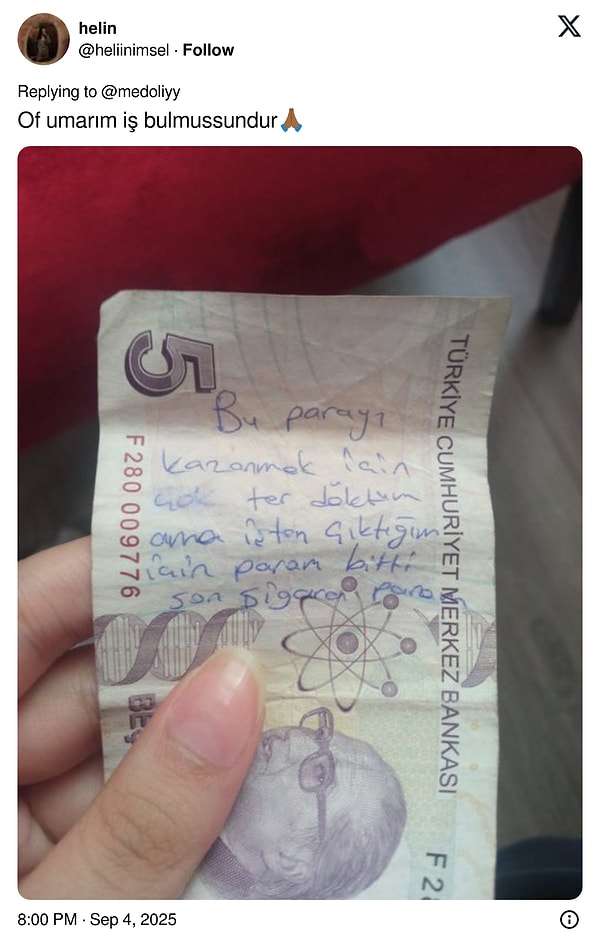 helin
@heliinimsel · Follow
Replying to @medoliyy
Of umarım iş bulmussundur🙏🏾
5
TÜRKİYE CUMHURİYET MERKEZ BANKASI
F280 009776
Bu parayı
kazanmak için
çok ter döktüm
ama işten çıktığım
için param bitti
son sigara param
BEŞ
F2
8:00 PM · Sep 4, 2025